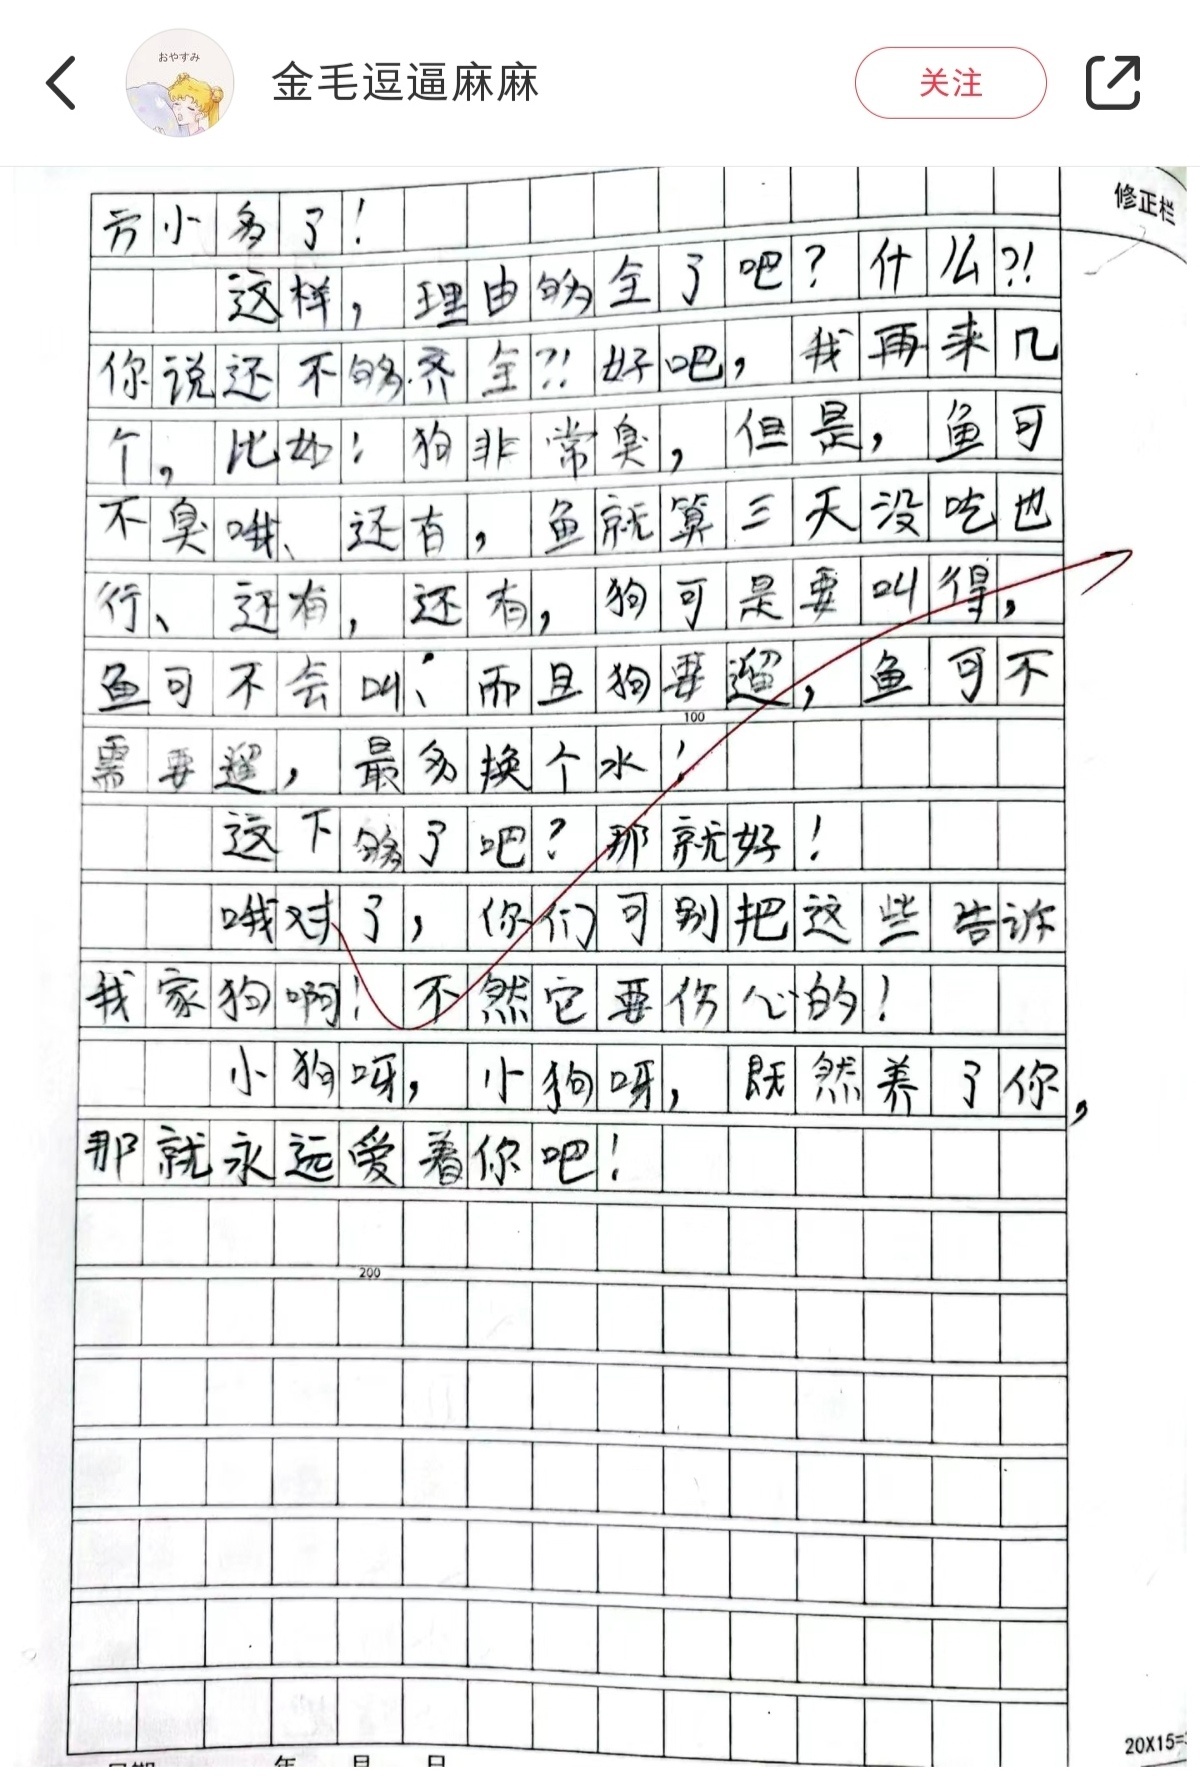 おやすみ
金毛逗逼麻麻
关注
修正栏
方小多了！
这样，理由够全了吧？什么？！
你说还不够齐全？！好吧，我再来几
个，比如：狗非常臭，但是，鱼可
不臭哦、还有，鱼就算三天没吃也
行、还有，还有，狗可是要叫得，
鱼可不会叫；而且狗要遛，鱼可不
100
需要遛，最多换个水！
这下够了吧？那就好！
哦对了，你们可别把这些告诉
我家狗啊！不然它要伤心的！
小狗呀，小狗呀，既然养了你，
那就永远爱着你吧！
200
年 月 日
20X15=